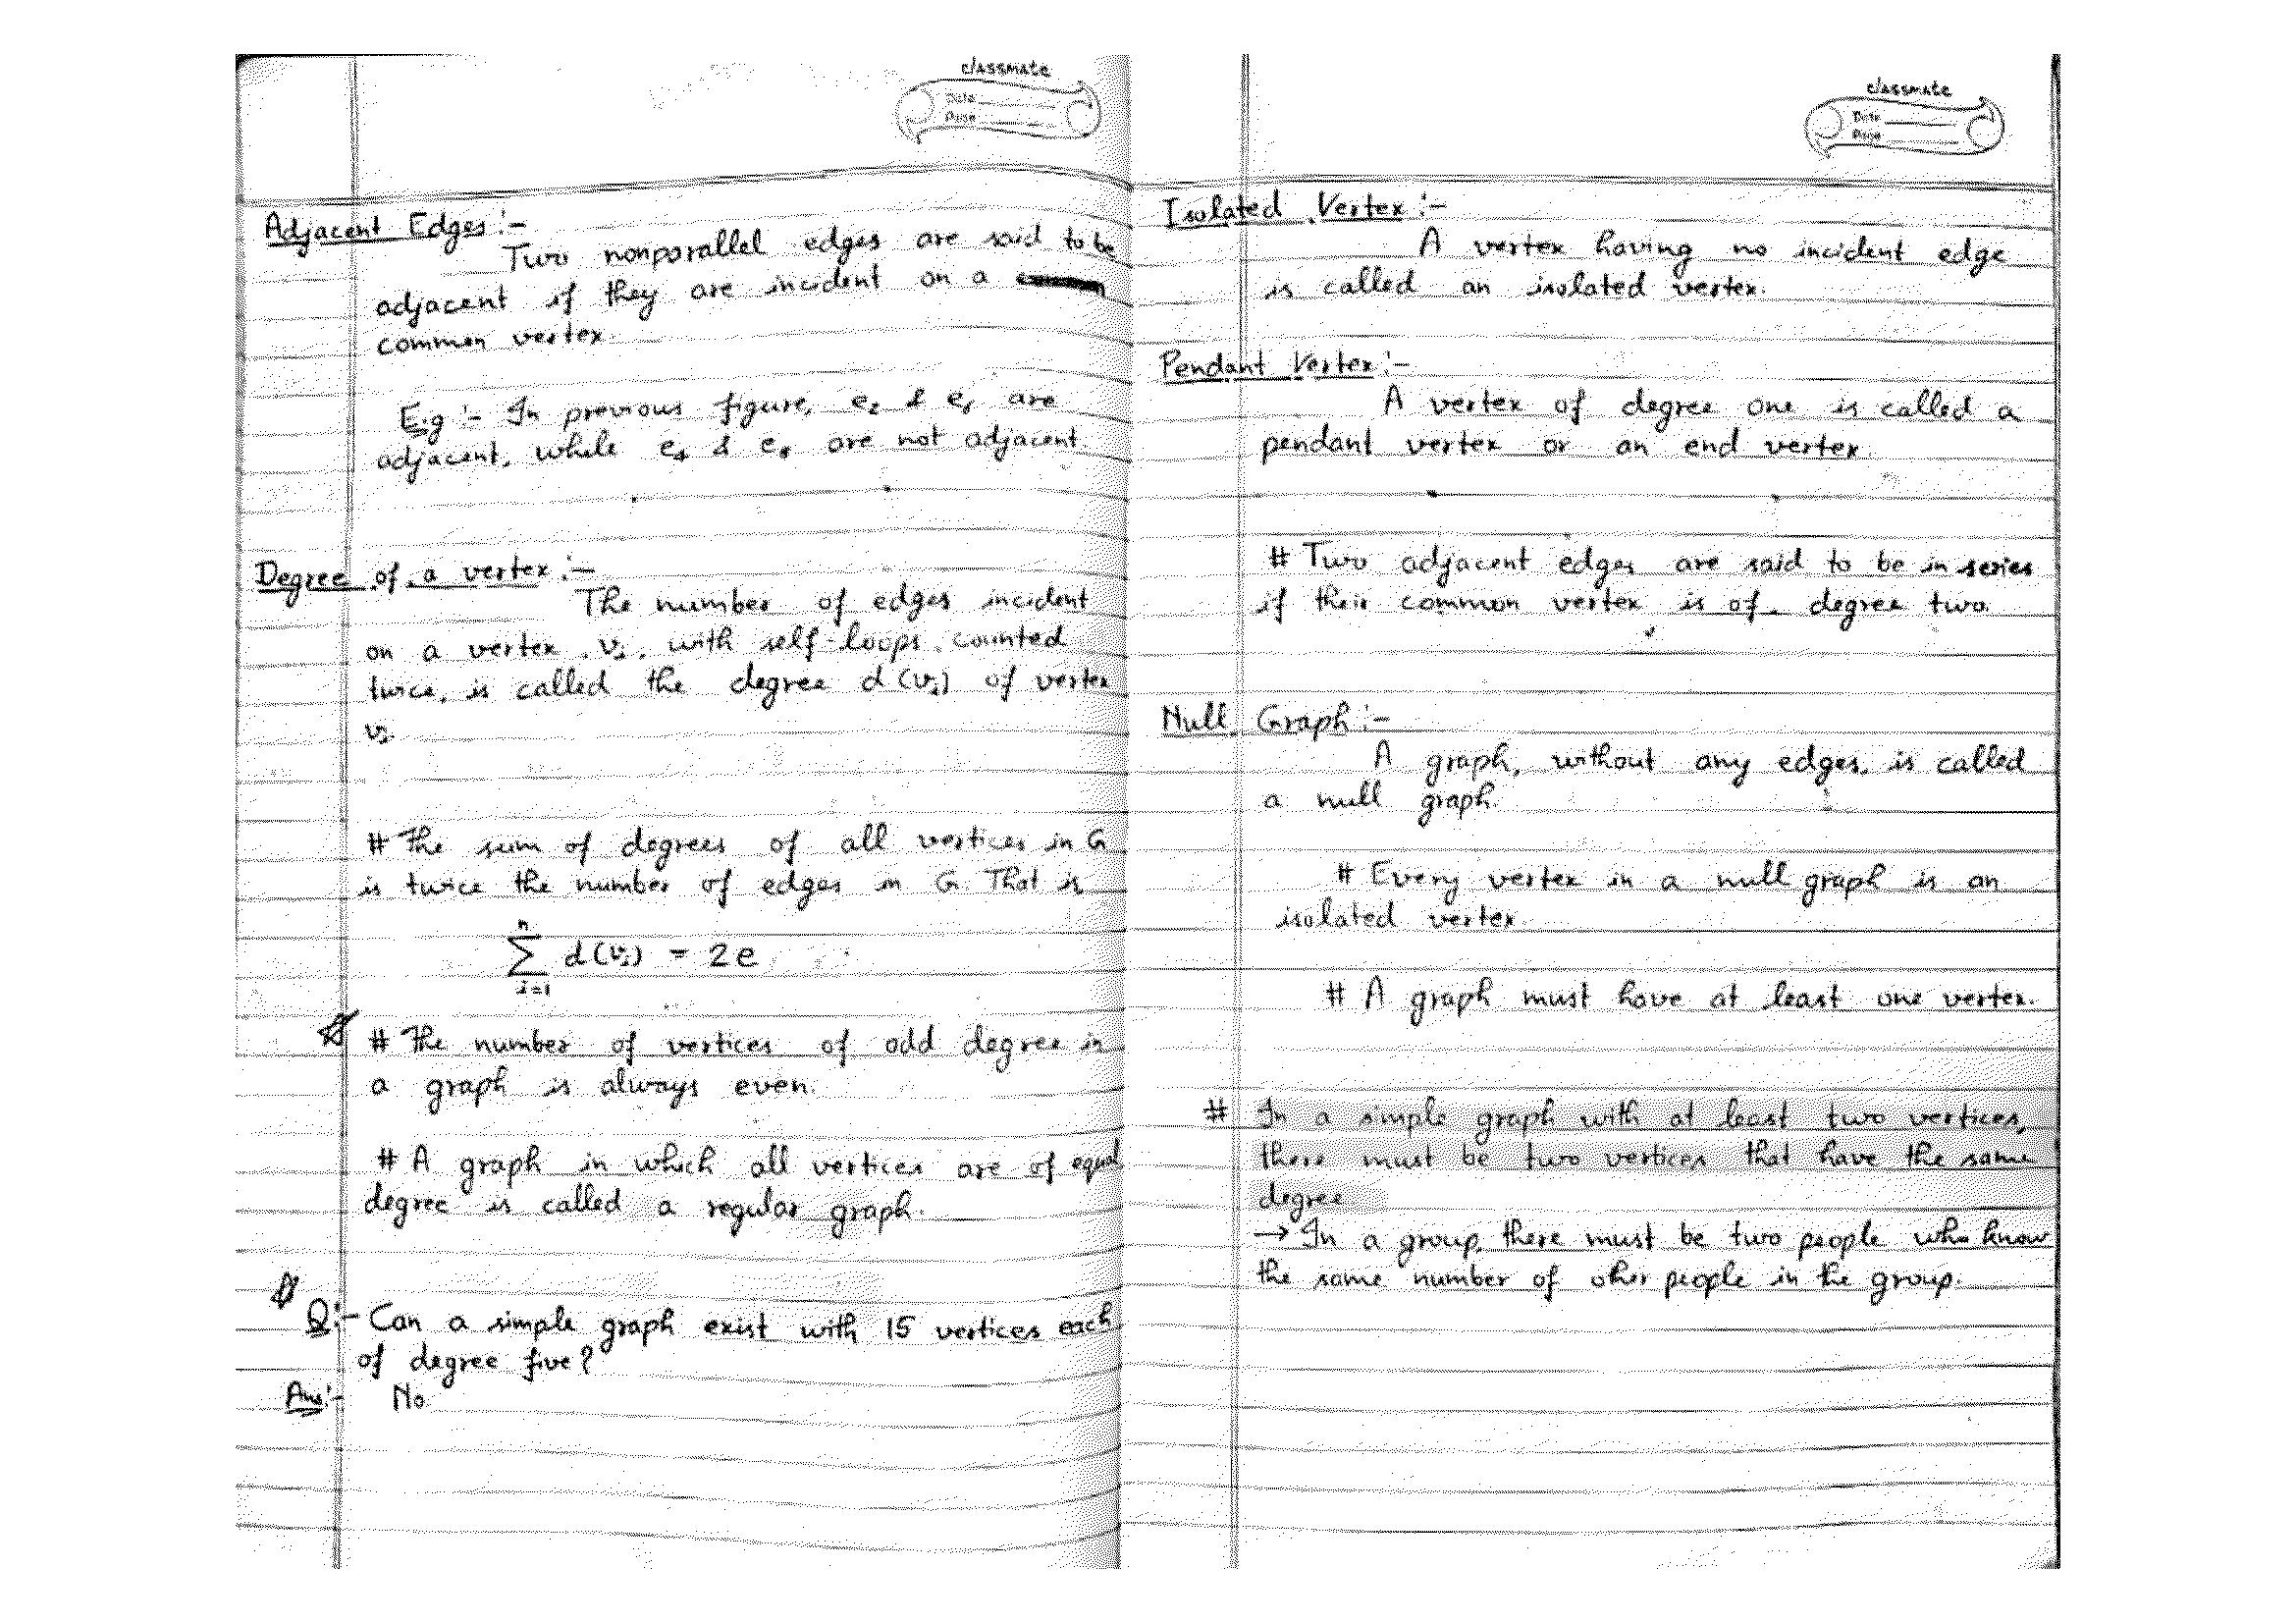 classmate
Date
Page
Adjacent Edges :-
Two nonparallel edges are said to be
adjacent if they are incident on a
common vertex.
E.g :- In previous figure, e₂ & e₁ are
adjacent, while e₄ & are not adjacent.
Degree of a vertex :-
The number of edges incident
on a vertex vᵢ, with self-loops counted
twice, is called the degree d(vᵢ) of vertex
vᵢ.
# The sum of degrees of all vertices in G
is twice the number of edges in G. That is
n
∑ d(vᵢ) = 2e
i=1
# The number of vertices of odd degree in
a graph is always even.
# A graph in which all vertices are of equal
degree is called a regular graph.
Q:- Can a simple graph exist with 15 vertices each
of degree five?
Ans:- No.
classmate
Date
Page
Isolated Vertex :-
A vertex having no incident edge
is called an isolated vertex.
Pendant Vertex :-
A vertex of degree one is called a
pendant vertex or an end vertex.
# Two adjacent edges are said to be in series
if their common vertex is of degree two.
Null Graph :-
A graph, without any edges, is called
a null graph.
# Every vertex in a null graph is an
isolated vertex.
# A graph must have at least one vertex.
# In a simple graph with at least two vertices,
there must be two vertices that have the same
degree.
→ In a group, there must be two people who know
the same number of other people in the group.